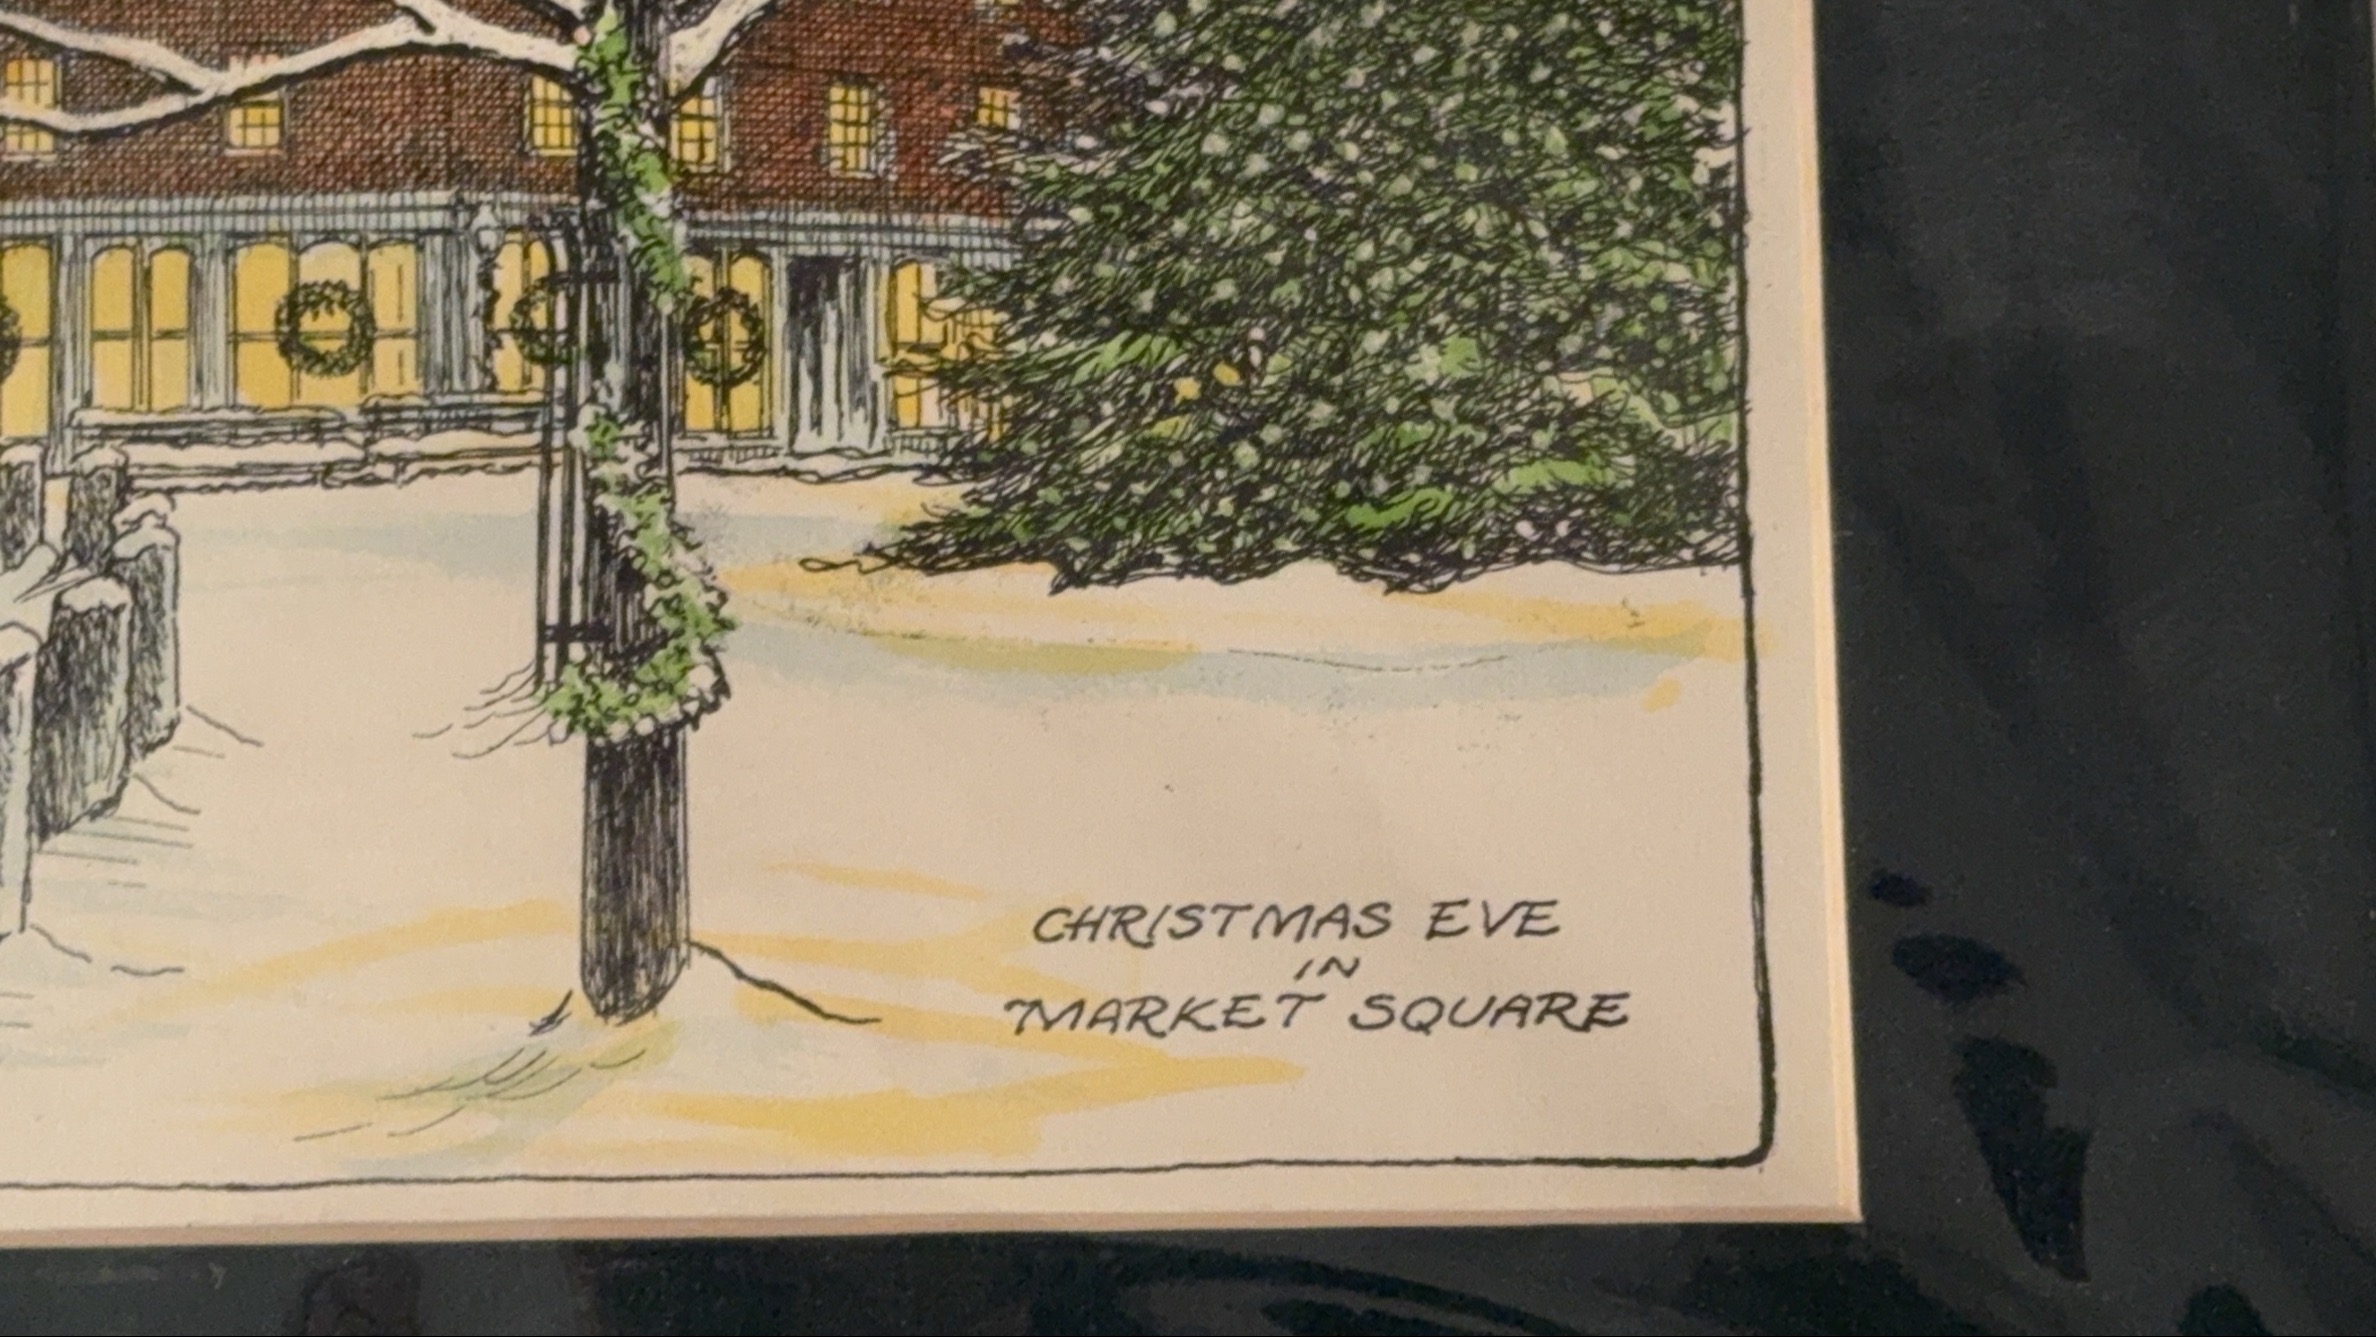 CHRISTMAS EVE
IN
MARKET SQUARE